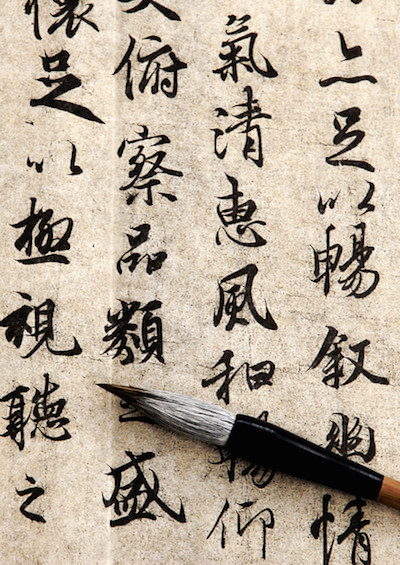 亦足以暢叙幽情
氣清惠風和暢仰
大俯察品類之盛
懷足以極視聽之